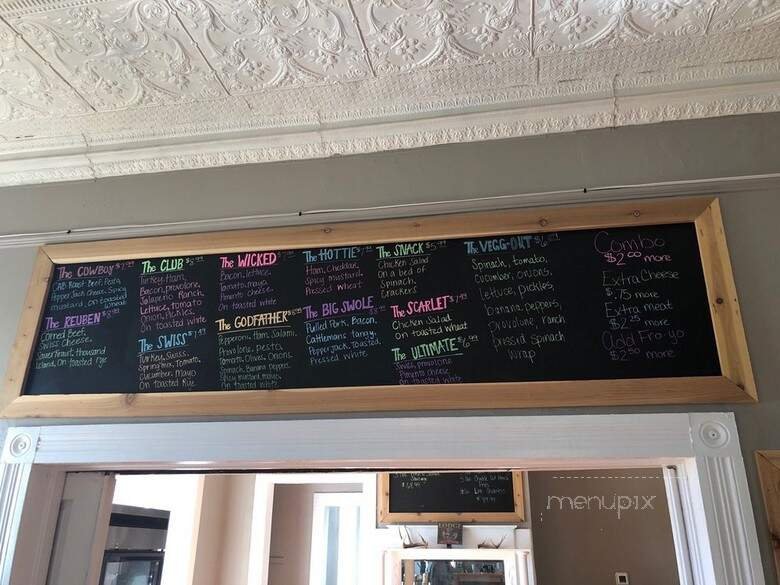 The COWBOY
Roast Beef,
Pepper Jack Cheese, Spicy
mustard, on toasted
The REUBEN
Corned Beef,
Swiss Cheese,
Sauerkraut, thousand
island, on toasted Rye
The CLUB
Turkey, Ham,
Bacon, provolone,
Jalapeño Ranch,
Lettuce, tomato
onion, Pickles,
on toasted white
The SWISS
Turkey, Swiss,
Spring mix, Tomato,
cucumber, mayo
on toasted Rye
The WICKED
Bacon, lettuce,
Tomato, mayo
Pimento cheese
on toasted white
The GODFATHER
Pepperoni, Ham, Salami,
Provolone, pesto,
Tomato, Olives, Onions
Spinach, Banana pepper,
Spicy mustard, mayo,
on toasted white
The HOTTIE
Ham, Cheddar,
Spicy mustard,
Pressed wheat
The BIG SWOLE
Pulled Pork, Bacon,
Cattlemans tangy,
Pepperjack, Toasted,
Pressed white
The SNACK
Chicken Salad
on a bed of
Spinach,
Crackers
The SCARLET
Chicken Salad
on toasted wheat
The ULTIMATE
Swiss, provolone
Pimento cheese
on toasted white
The VEGG-OUT
Spinach, tomato,
Cucumber, onions,
Lettuce, pickles,
banana peppers,
provolone, ranch
pressed spinach
wrap
Combo
$2.00 more
Extra Cheese
$.75 more
Extra meat
$2.25 more
add Fro-yo
$2.50 more
menupix
LODGE